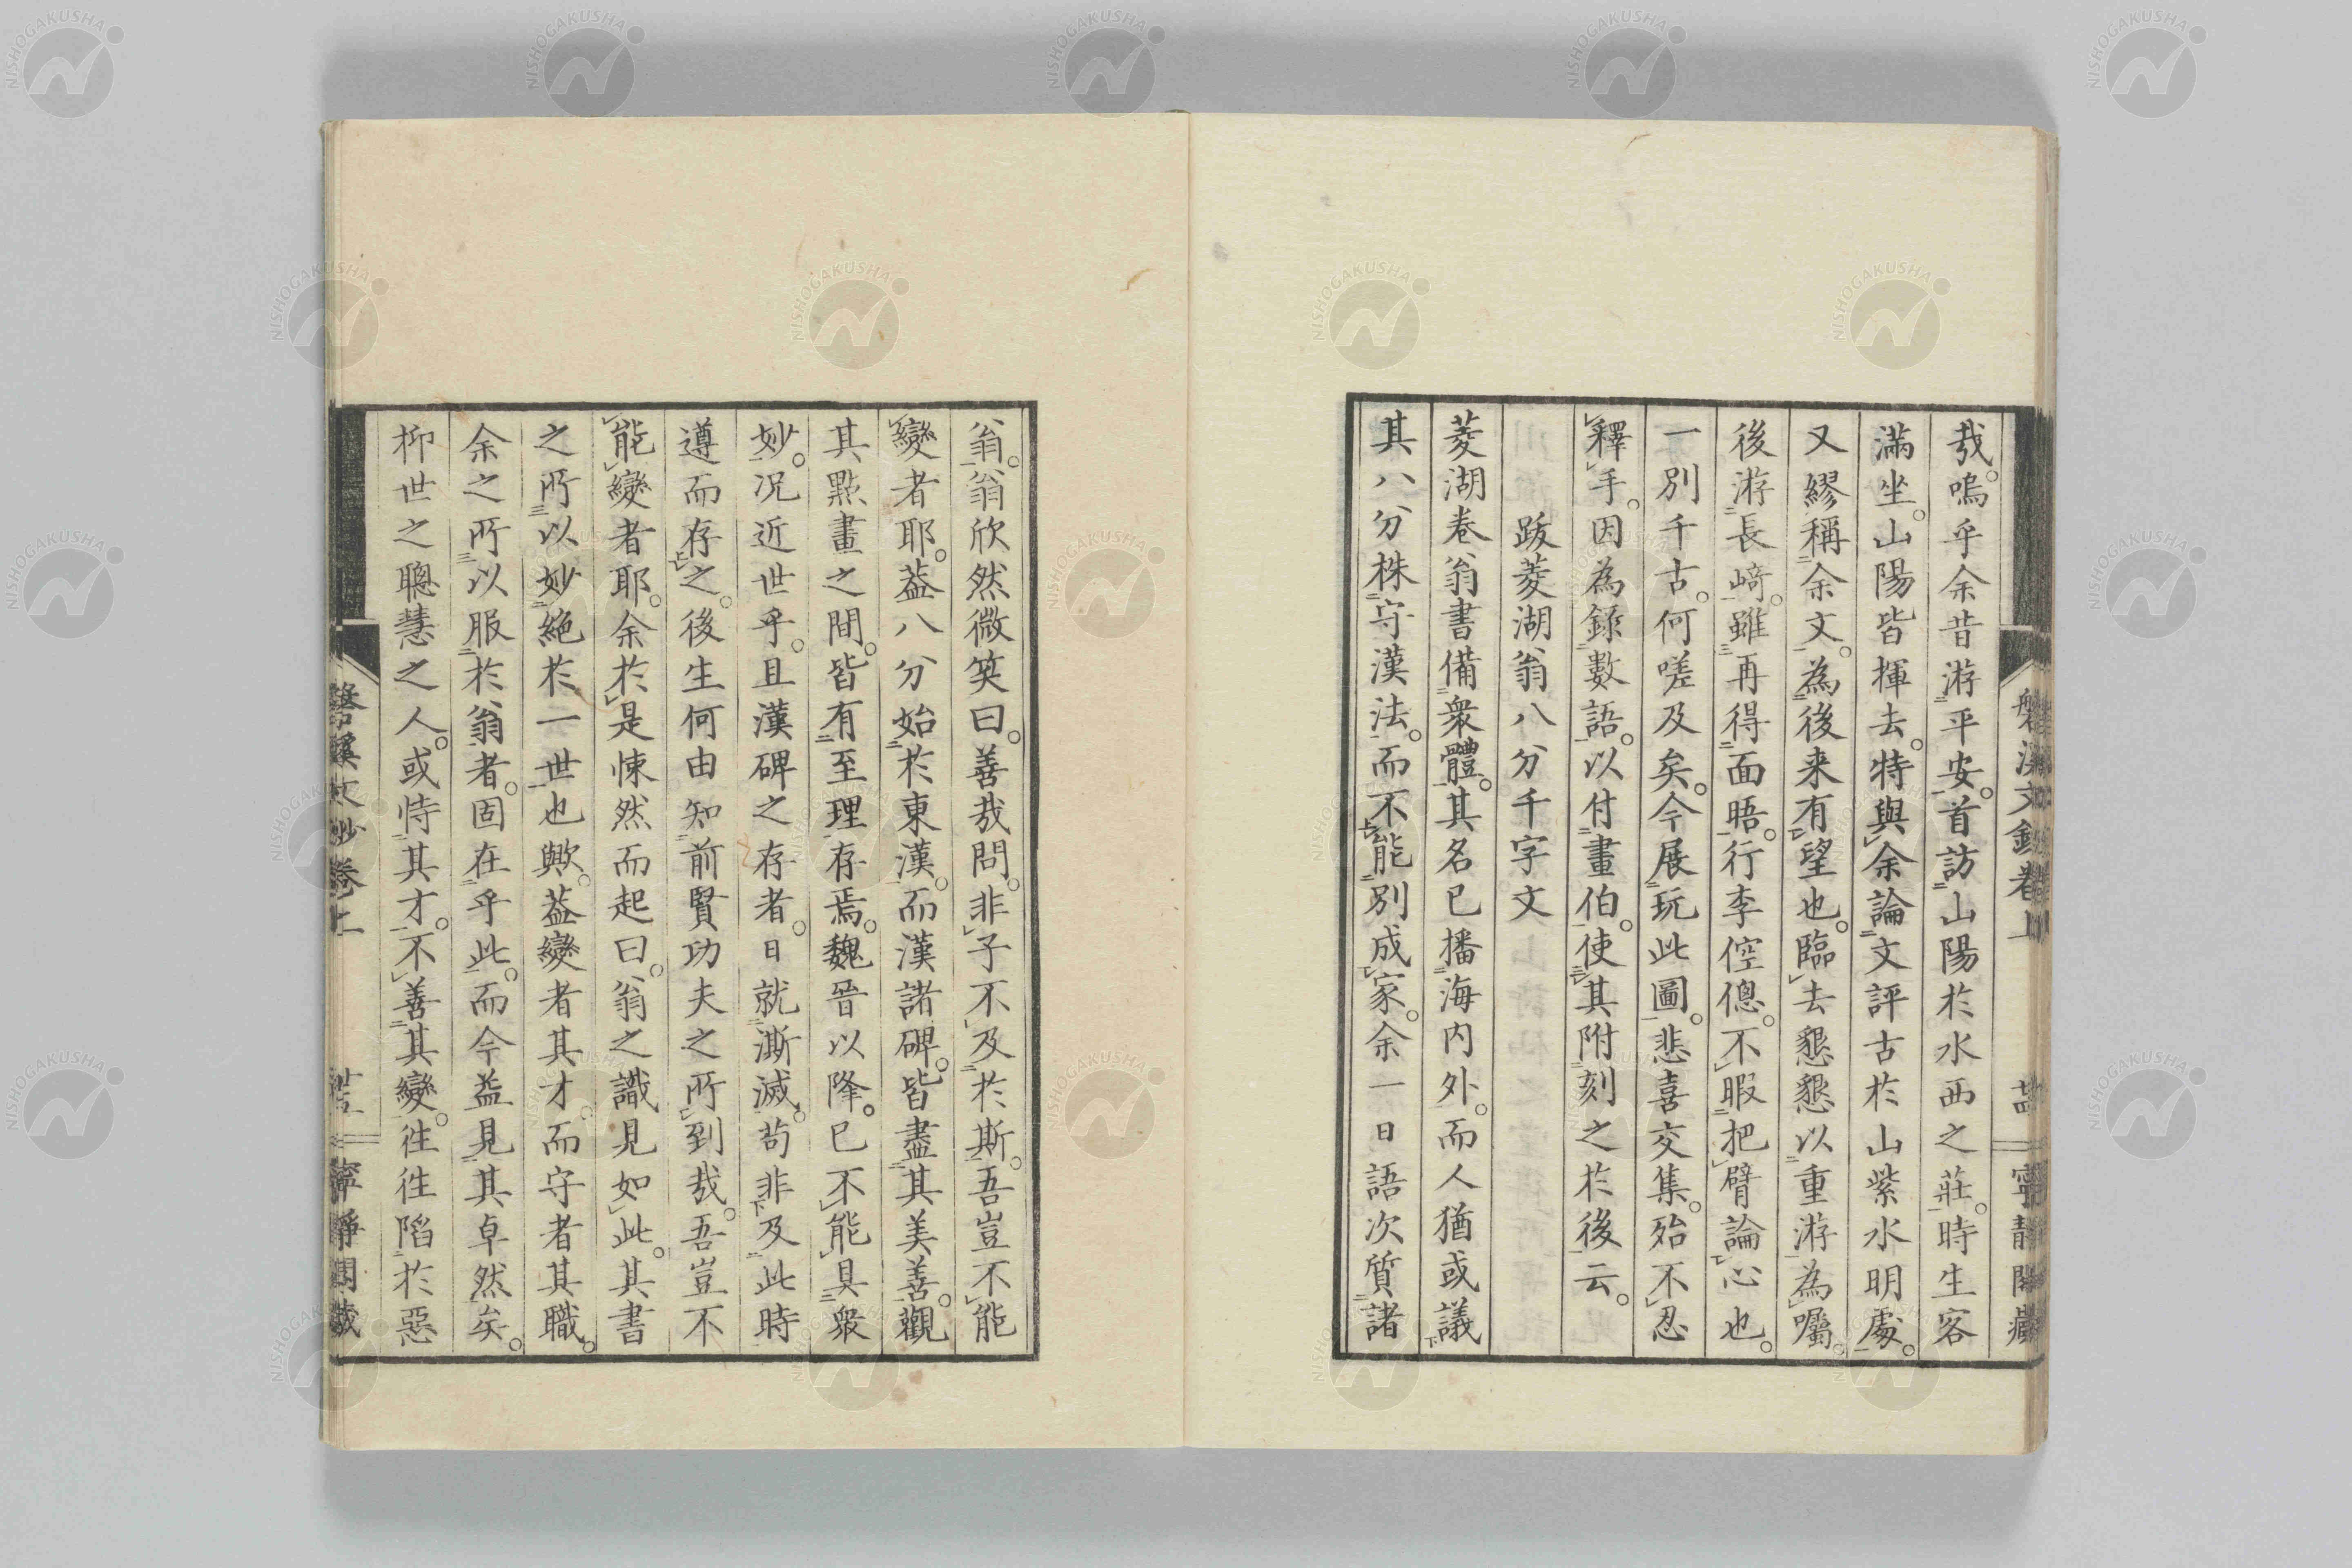 哉。嗚乎余昔游平安。首訪山陽於水西之莊。時生客
滿坐。山陽皆揮去。特與余論文評古於山紫水明處。
又繆稱余文。為後来有望也。臨去懇懇以重游為囑。
後游長崎。雖再得面晤。行李倥偬。不暇把臂論心也。
一別千古。何嗟及矣。今展玩此圖。悲喜交集。殆不忍
釋手。因為錄數語。以付畫伯。使其附刻之於後云。
跋菱湖翁八分千字文
菱湖卷翁書備衆體。其名已播海內外。而人猶或議
其八分株守漢法。而不能別成家。余一日語次質諸
翁。翁欣然微笑曰。善哉問。非子不及於斯。吾豈不能
變者耶。葢八分始於東漢。而漢諸碑。皆盡其美善。觀
其點畫之間。皆有至理存焉。魏晉以降。已不能具衆
妙。况近世乎。且漢碑之存者。日就澌滅。苟非及此時
遵而存之。後生何由知前賢功夫之所到哉。吾豈不
能變者耶。余於是悚然而起曰。翁之識見如此。其書
之所以妙絕於一世也歟。葢變者其才。而守者其職。
余之所以服於翁者。固在乎此。而今益見其卓然矣。
抑世之聰慧之人。或恃其才。不善其變。往往陷於惡
磐溪文鈔卷上
寧靜閣藏